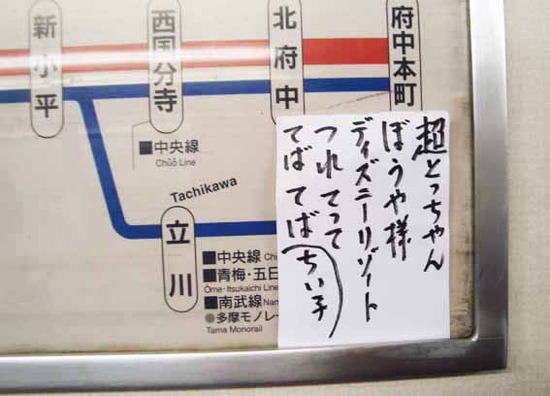 新小平
西国分寺
北府中
府中本町
■中央線
Chūō Line
Tachikawa
立川
■中央線
■青梅・五日
Ōme-Itsukaichi Line
■南武線
●多摩モノレー
Tama Monorail
超とっちゃん
ぼうや様
ディズニーリゾート
つれてって
てばてば
ちい子